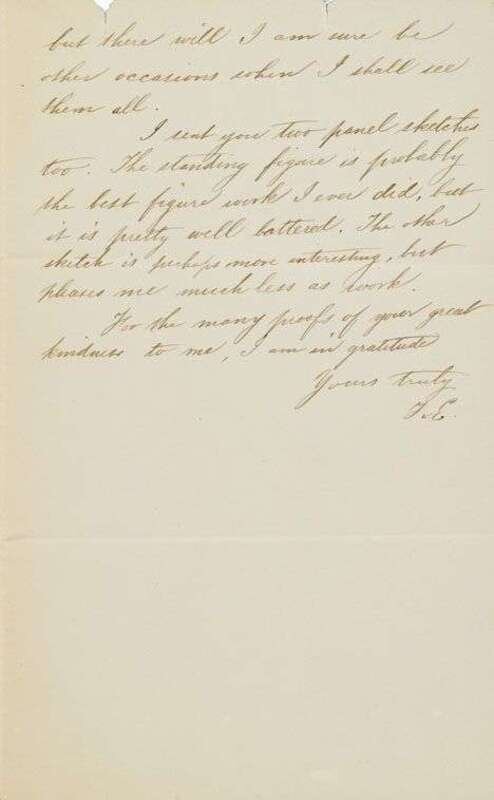 but there will I am sure be
other occasions when I shall see
them all.
I sent you two panel sketches
too. The standing figure is probably
the best figure work I ever did, but
it is pretty well battered. The other
sketch is perhaps more interesting, but
pleases me much less as work.
For the many proofs of your great
kindness to me, I am in gratitude
Yours truly
T.E.